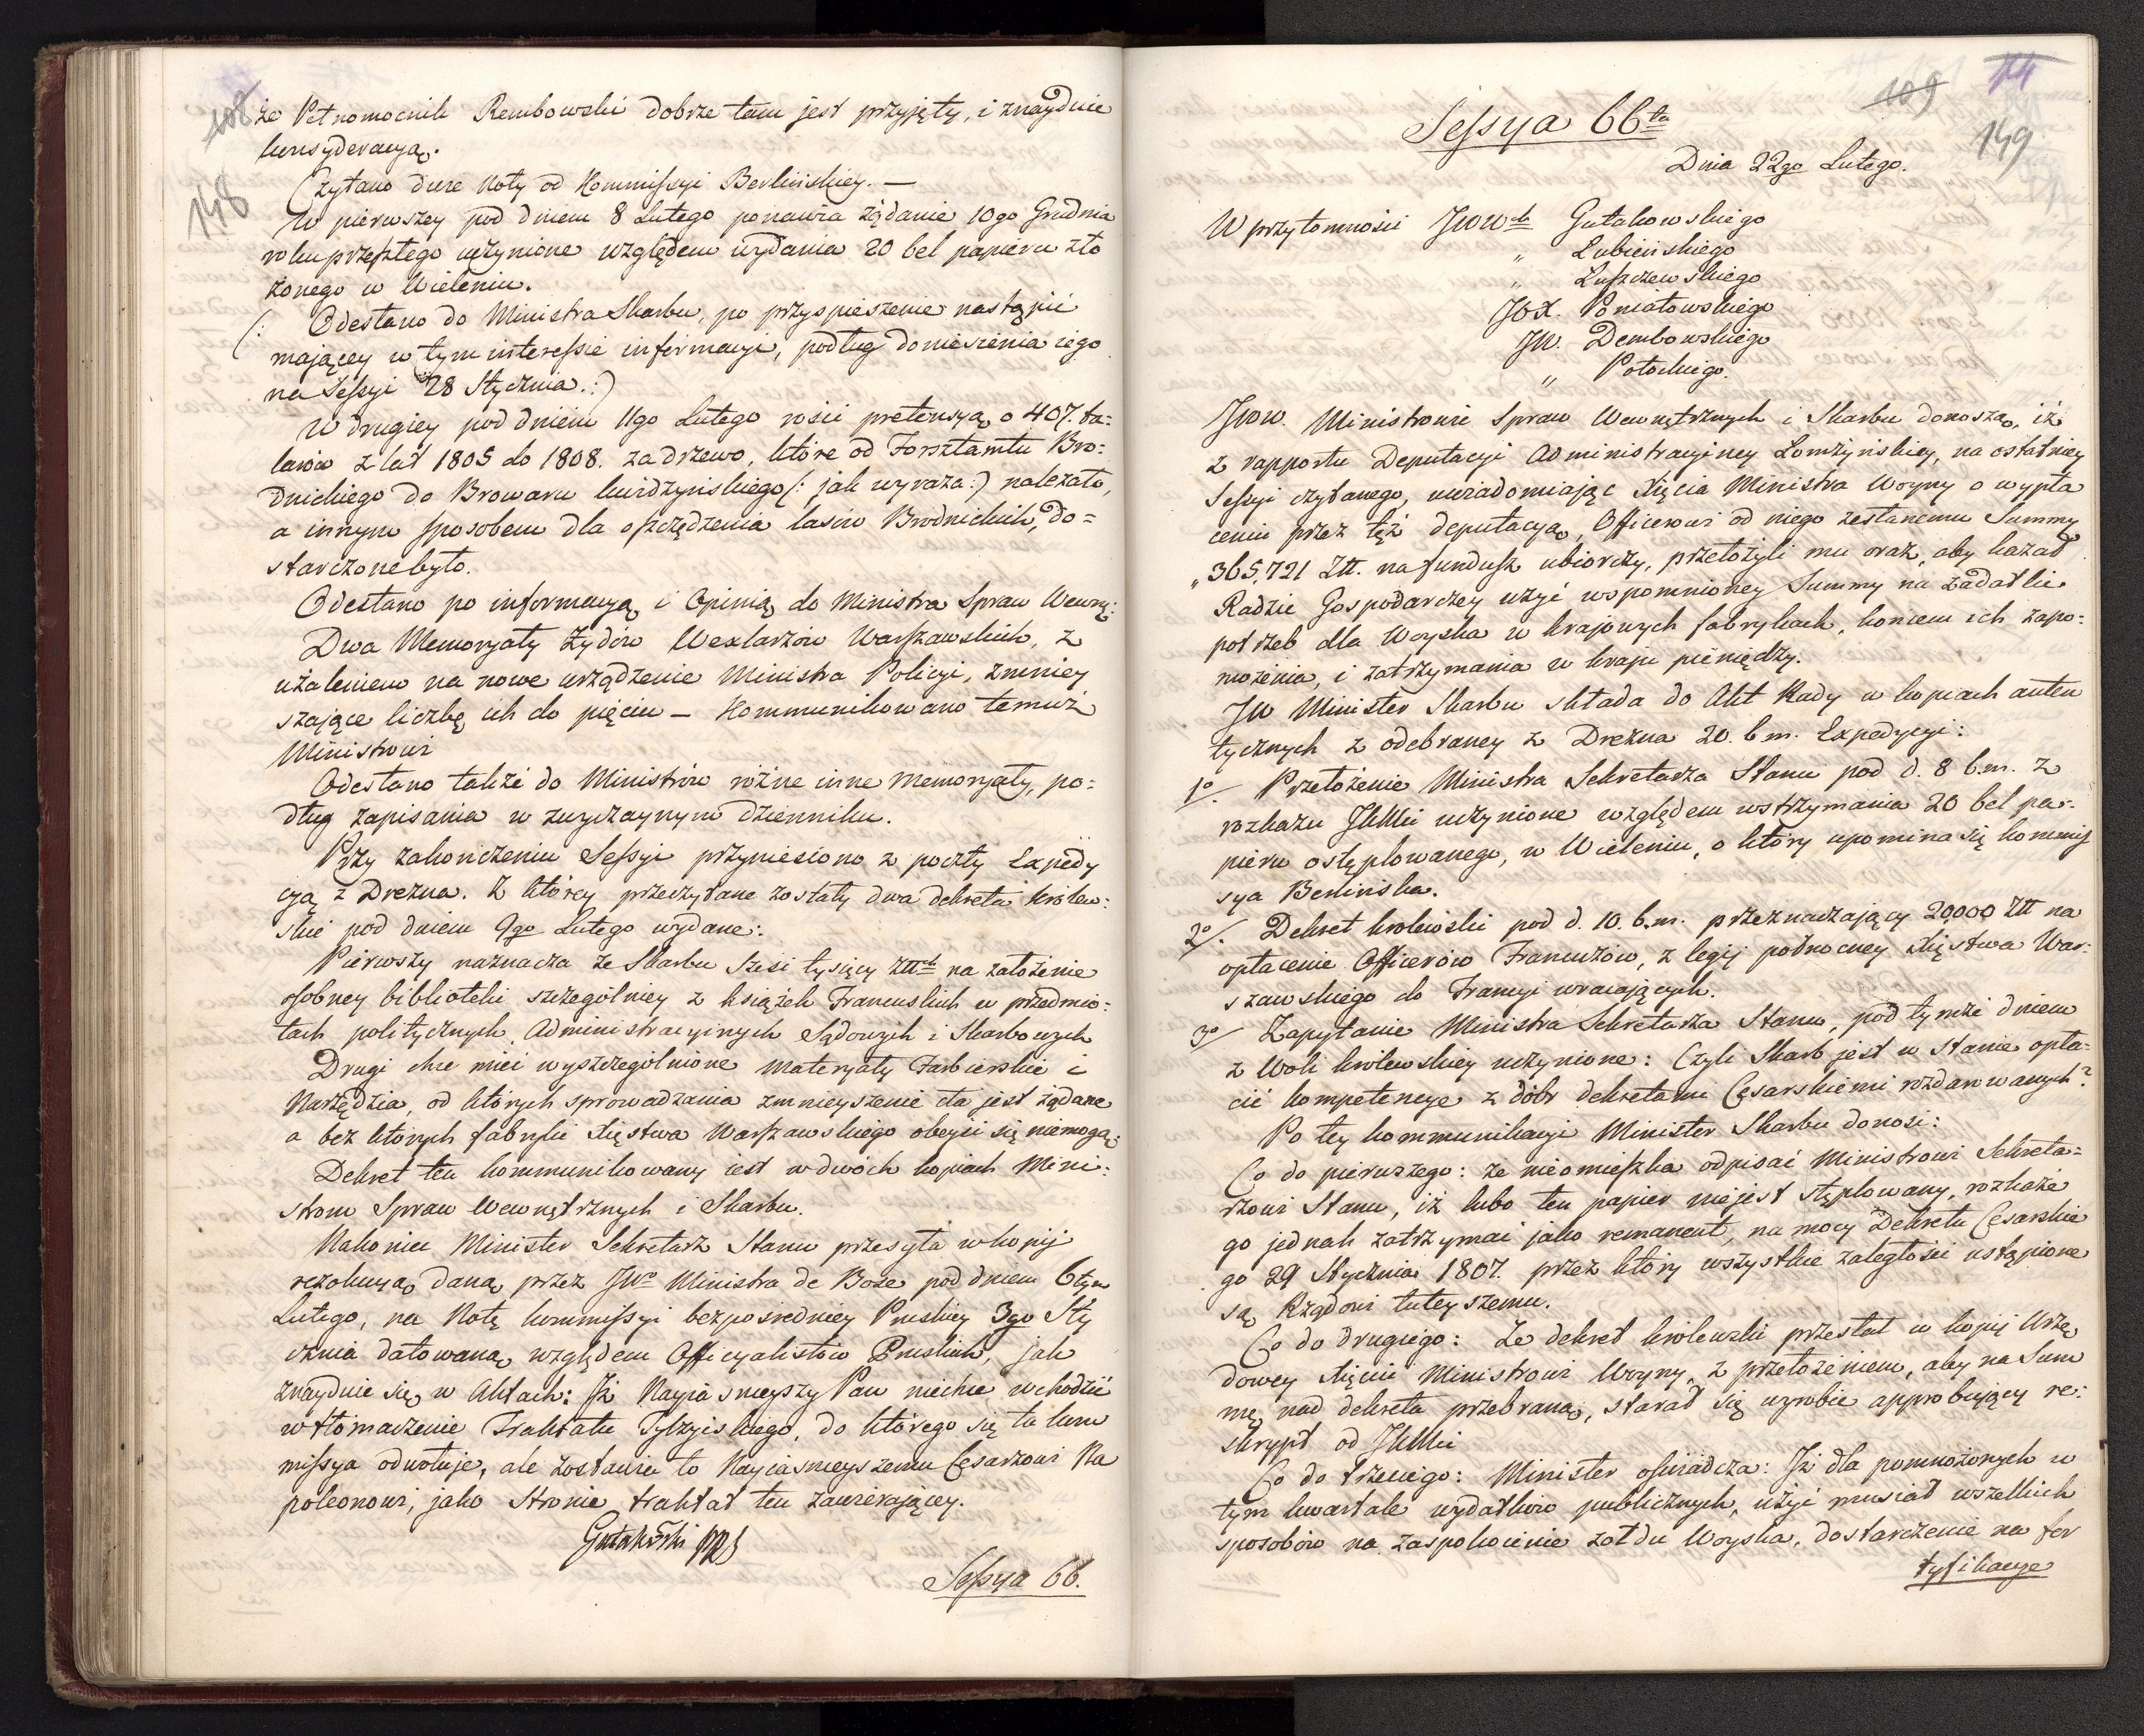 108
148
że Pełnomocnik Rembowski dobrze tam jest przyjęty, i znayduie
konsyderacyą.
Czytano dwie Noty od Kommissyi Berlińskiey. —
W pierwszey pod dniem 8 Lutego ponawia żądanie 10go Grudnia
roku przeszłego uczynione względem wydania 20 bel papieru zło
żonego w Wieleniu.
(: Odesłano do Ministra Skarbu, po przyspieszenie nastąpić
maiącey w tym interessie informacyi, podług doniesienia iego
na Sessyi 28 Stycznia. :)
W drugiey pod dniem 11go Lutego rości pretensyą o 407. ta=
larów z lat 1805 do 1808. za drzewo, które od Forsztamtu Bro=
dnickiego do Browaru kwidzyńskiego (: jak wyraża :) należało,
a innym sposobem dla oszczędzenia lasów Brodnickich, do=
starczone było.
Odesłano po informacyą i Opinią do Ministra Spraw Wewnę:
Dwa Memoryały Żydów Wexlarzów Warszawskich, z
użaleniem na nowe urządzenie Ministra Policyi, zmniey
szaiące liczbę ich do pięciu — Kommunikowano temuż
Ministrowi
Odesłano także do Ministrów różne inne Memoryały, po=
dług zapisania w zwyczaynym dzienniku.
Przy zakończeniu Sessyi przyniesiono z poczty Expedy
cyą z Drezna. Z którey przeczytane zostały dwa dekreta Królew:
skie pod dniem 9go Lutego wydane:
Pierwszy naznacza ze Skarbu sześć tysięcy Złtch na założenie
osobney biblioteki szczególniey z książek Francuskich w przedmio=
tach politycznych, Administracyinych Sądowych i Skarbowych
Drugi chce mieć wyszczególnione Materyały Farbierskie i
Narzędzia, od których sprowadzania zmnieyszenie cła jest żądane
a bez których fabryki Xięstwa Warszawskiego obeyść się niemogą.
Dekret ten kommunikowany iest w dwóch kopiach Mini:
strom Spraw Wewnętrznych i Skarbu.
Nakoniec Minister Sekretarz Stanu przesyła w kopij
rezolucyą daną przez JWo Ministra de Bose pod dniem 6tym
Lutego, na Notę kommissyi bezpośredniey Pruskiey 3go Sty
cznia datowaną względem Officyalistów Pruskich, jak
znayduie się w Aktach: Iż Nayiaśnieyszy Pan niechce wchodzić
w tłomaczenie Traktatu Tylżyiskiego, do którego się ta kom
missya odwołuje, ale zostawia to Nayiaśnieyszemu Cesarzowi Na
poleonowi, jako stronie traktat ten zawieraiącey.
Gutakowski
Sessya 66.
109
149
Sessya 66ta
Dnia 22go Lutego.
W przytomności JWWch Gutakowskiego
„ Łubieńskiego
„ Luszczewskiego
JOX. Poniatowskiego
JW. Dembowskiego
„ Potockiego.
JWW. Ministrowie Spraw Wewnętrznych i Skarbu donoszą, iż
z rapportu Deputacyi Administracyiney Łomżyńskiey, na ostatniey
Sessyi czytanego, uwiadomiając Xięcia Ministra Woyny o wypła
ceniu przez tęż deputacyą, Officerowi od niego zesłanemu Summy
„ 365,721 Złt. na fundusz ubiorczy, przełożyli mu oraz, aby kazał
Radzie Gospodarczey użyć wspomnioney Summy na zadatki
potrzeb dla Woyska w krajowych fabrykach, końcem ich zapo:
możenia, i zatrzymania w kraju pieniędzy.
JW Minister Skarbu składa do Akt Rady w kopiach auten
tycznych z odebraney z Drezna 20. b.m. Expedycyi:
1o/. Przełożenie Ministra Sekretarza Stanu pod d. 8 b.m. z
rozkazu JKMci uczynione względem wstrzymania 20 bel pa=
pieru ostęplowanego, w Wieleniu, o który upomina się kommis
sya Berlińska.
2o/. Dekret królewski pod d. 10. b.m. przeznaczaiący 20,000 Złt na
opłacenie Officerów Francuzów, z legij północney Xięstwa War:
szawskiego do Francyi wracaiących.
3o/ Zapytanie Ministra Sekretarza Stanu, pod tymże dniem
z Woli królewskiey uczynione: Czyli Skarb jest w stanie opła=
cić kompetencye z dóbr dekretami Cesarskiemi rozdarowanych?
Po tey kommunikacyi Minister Skarbu donosi:
Co do pierwszego: że nieomieszka odpisać Ministrowi Sekreta=
rzowi Stanu, iż lubo ten papier nie jest stęplowany, rozkaże
go jednak zatrzymać jako remanent, na mocy Dekretu Cesarskie
go 29 Stycznia 1807. przez który wszystkie zaległości ustąpione
są Rządowi tuteyszemu.
Co do drugiego: Że dekret królewski przesłał w kopij Urzę
dowey Xięciu Ministrowi Woyny, z przełożeniem, aby na Sum
mę nad dekreta przebraną, starał się wyrobić approbuiący re:
skrypt od JKMci
Co do trzeciego: Minister oświadcza: Iż dla pomnożonych w
tym kwartale wydatków publicznych, użyć musiał wszelkich
sposobów na zaspokoienie żołdu Woyska, dostarczenie na for
tyfikacye